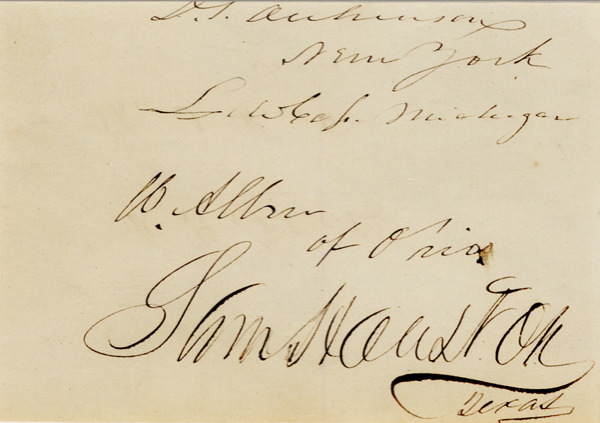 D. S. Dickinson
New York
Lewis Cass. Michigan
W. Allen
of Ohio
Sam Houston
Texas